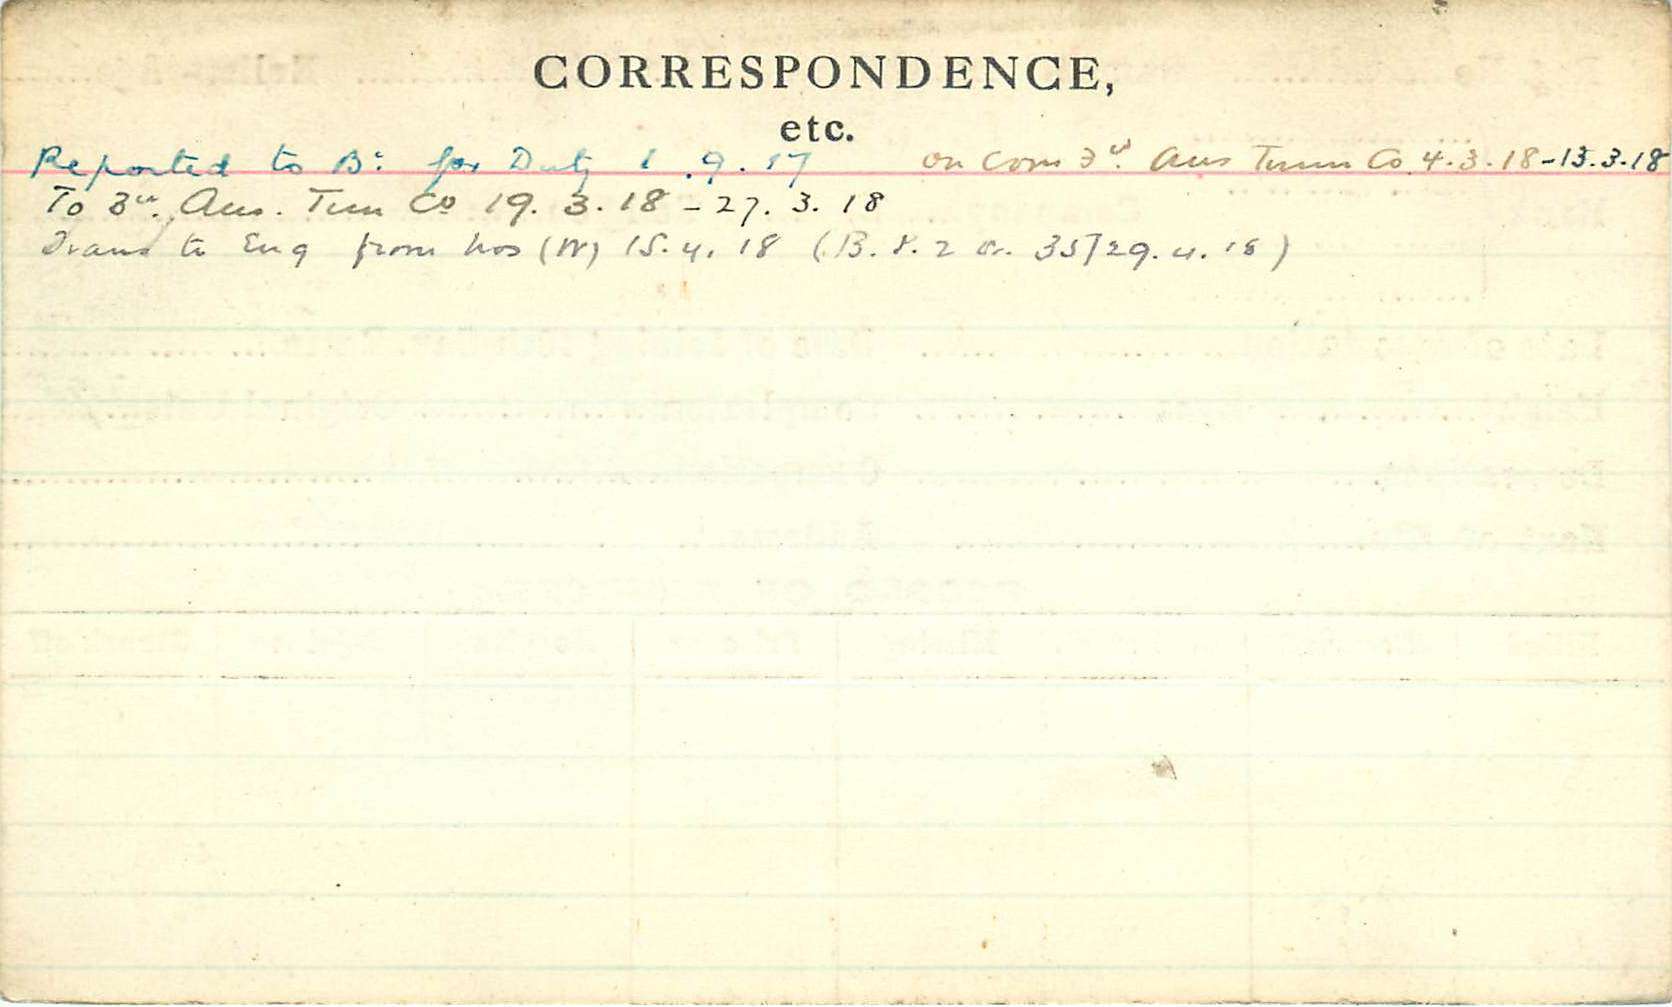 CORRESPONDENCE,
etc.
Reported to Bn for Duty 1.9.17 on Com 3rd Aus Tunn Co. 4.3.18-13.3.18
To 3rd. Aus. Tun Co 19.3.18-27.3.18
Trans to Eng from hos (W) 15.4.18 (B. 35/29.4.18)